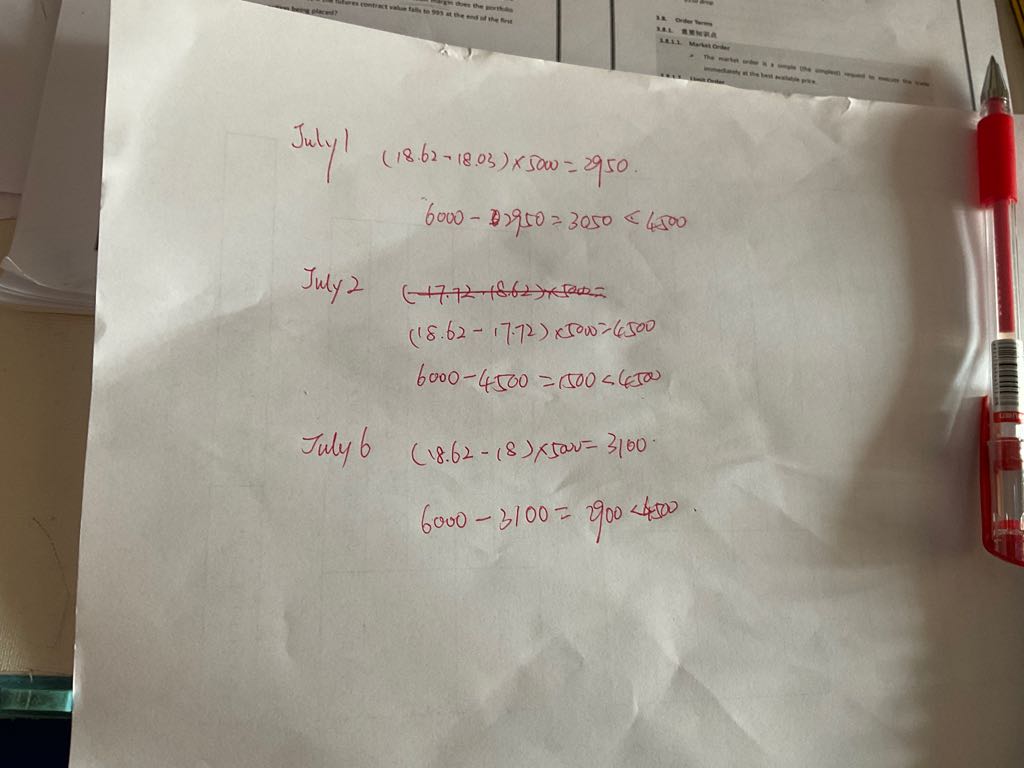 margin does the portfolio
the futures contract value falls to 995 at the end of the first
being placed?
3.8. Order Terms
3.8.1. 重要知识点
3.8.1.1. Market Order
➤ The market order is a simple (the simplest) request to execute the trade
immediately at the best available price.
Limit Order
July 1
(18.62-18.03)×5000=2950.
6000-2950=3050<4500
July 2
(-17.72-18.62)×5000=
(18.62-17.72)×5000=4500
6000-4500=1500<4500
July 6
(18.62-18)×5000=3100.
6000-3100=2900<4500.